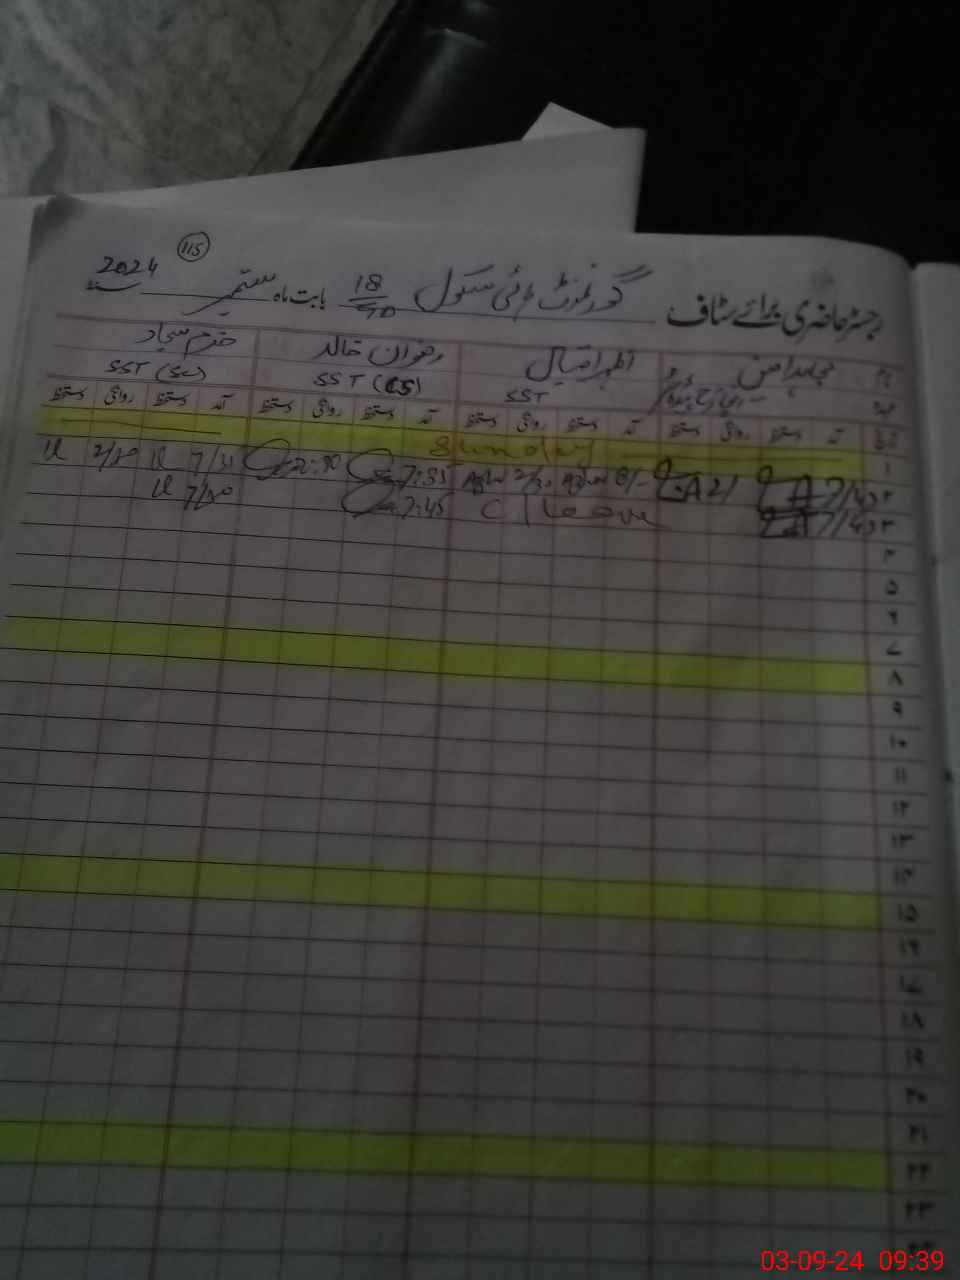 115
2024
رجسٹر حاضری برائے سٹاف گورنمنٹ ہائی سکول 18 بابت ماہ ستمبر
نام مجاہد اظہر اقبال رضوان خالد خرم سجاد
عہدہ SST SST (CS) SST (Sc)
تاریخ آمد دستخط روانگی دستخط آمد دستخط روانگی دستخط آمد دستخط روانگی دستخط آمد دستخط روانگی دستخط
۱ Sunday
۲ 8/- 2/30 7:35 2:30 7/31 2/30
۳ C/Leave 7:45 7/30
۴
۵
۶
۷
۸
۹
۱۰
۱۱
۱۲
۱۳
۱۴
۱۵
۱۶
۱۷
۱۸
۱۹
۲۰
۲۱
۲۲
۲۳
03-09-24 09:39